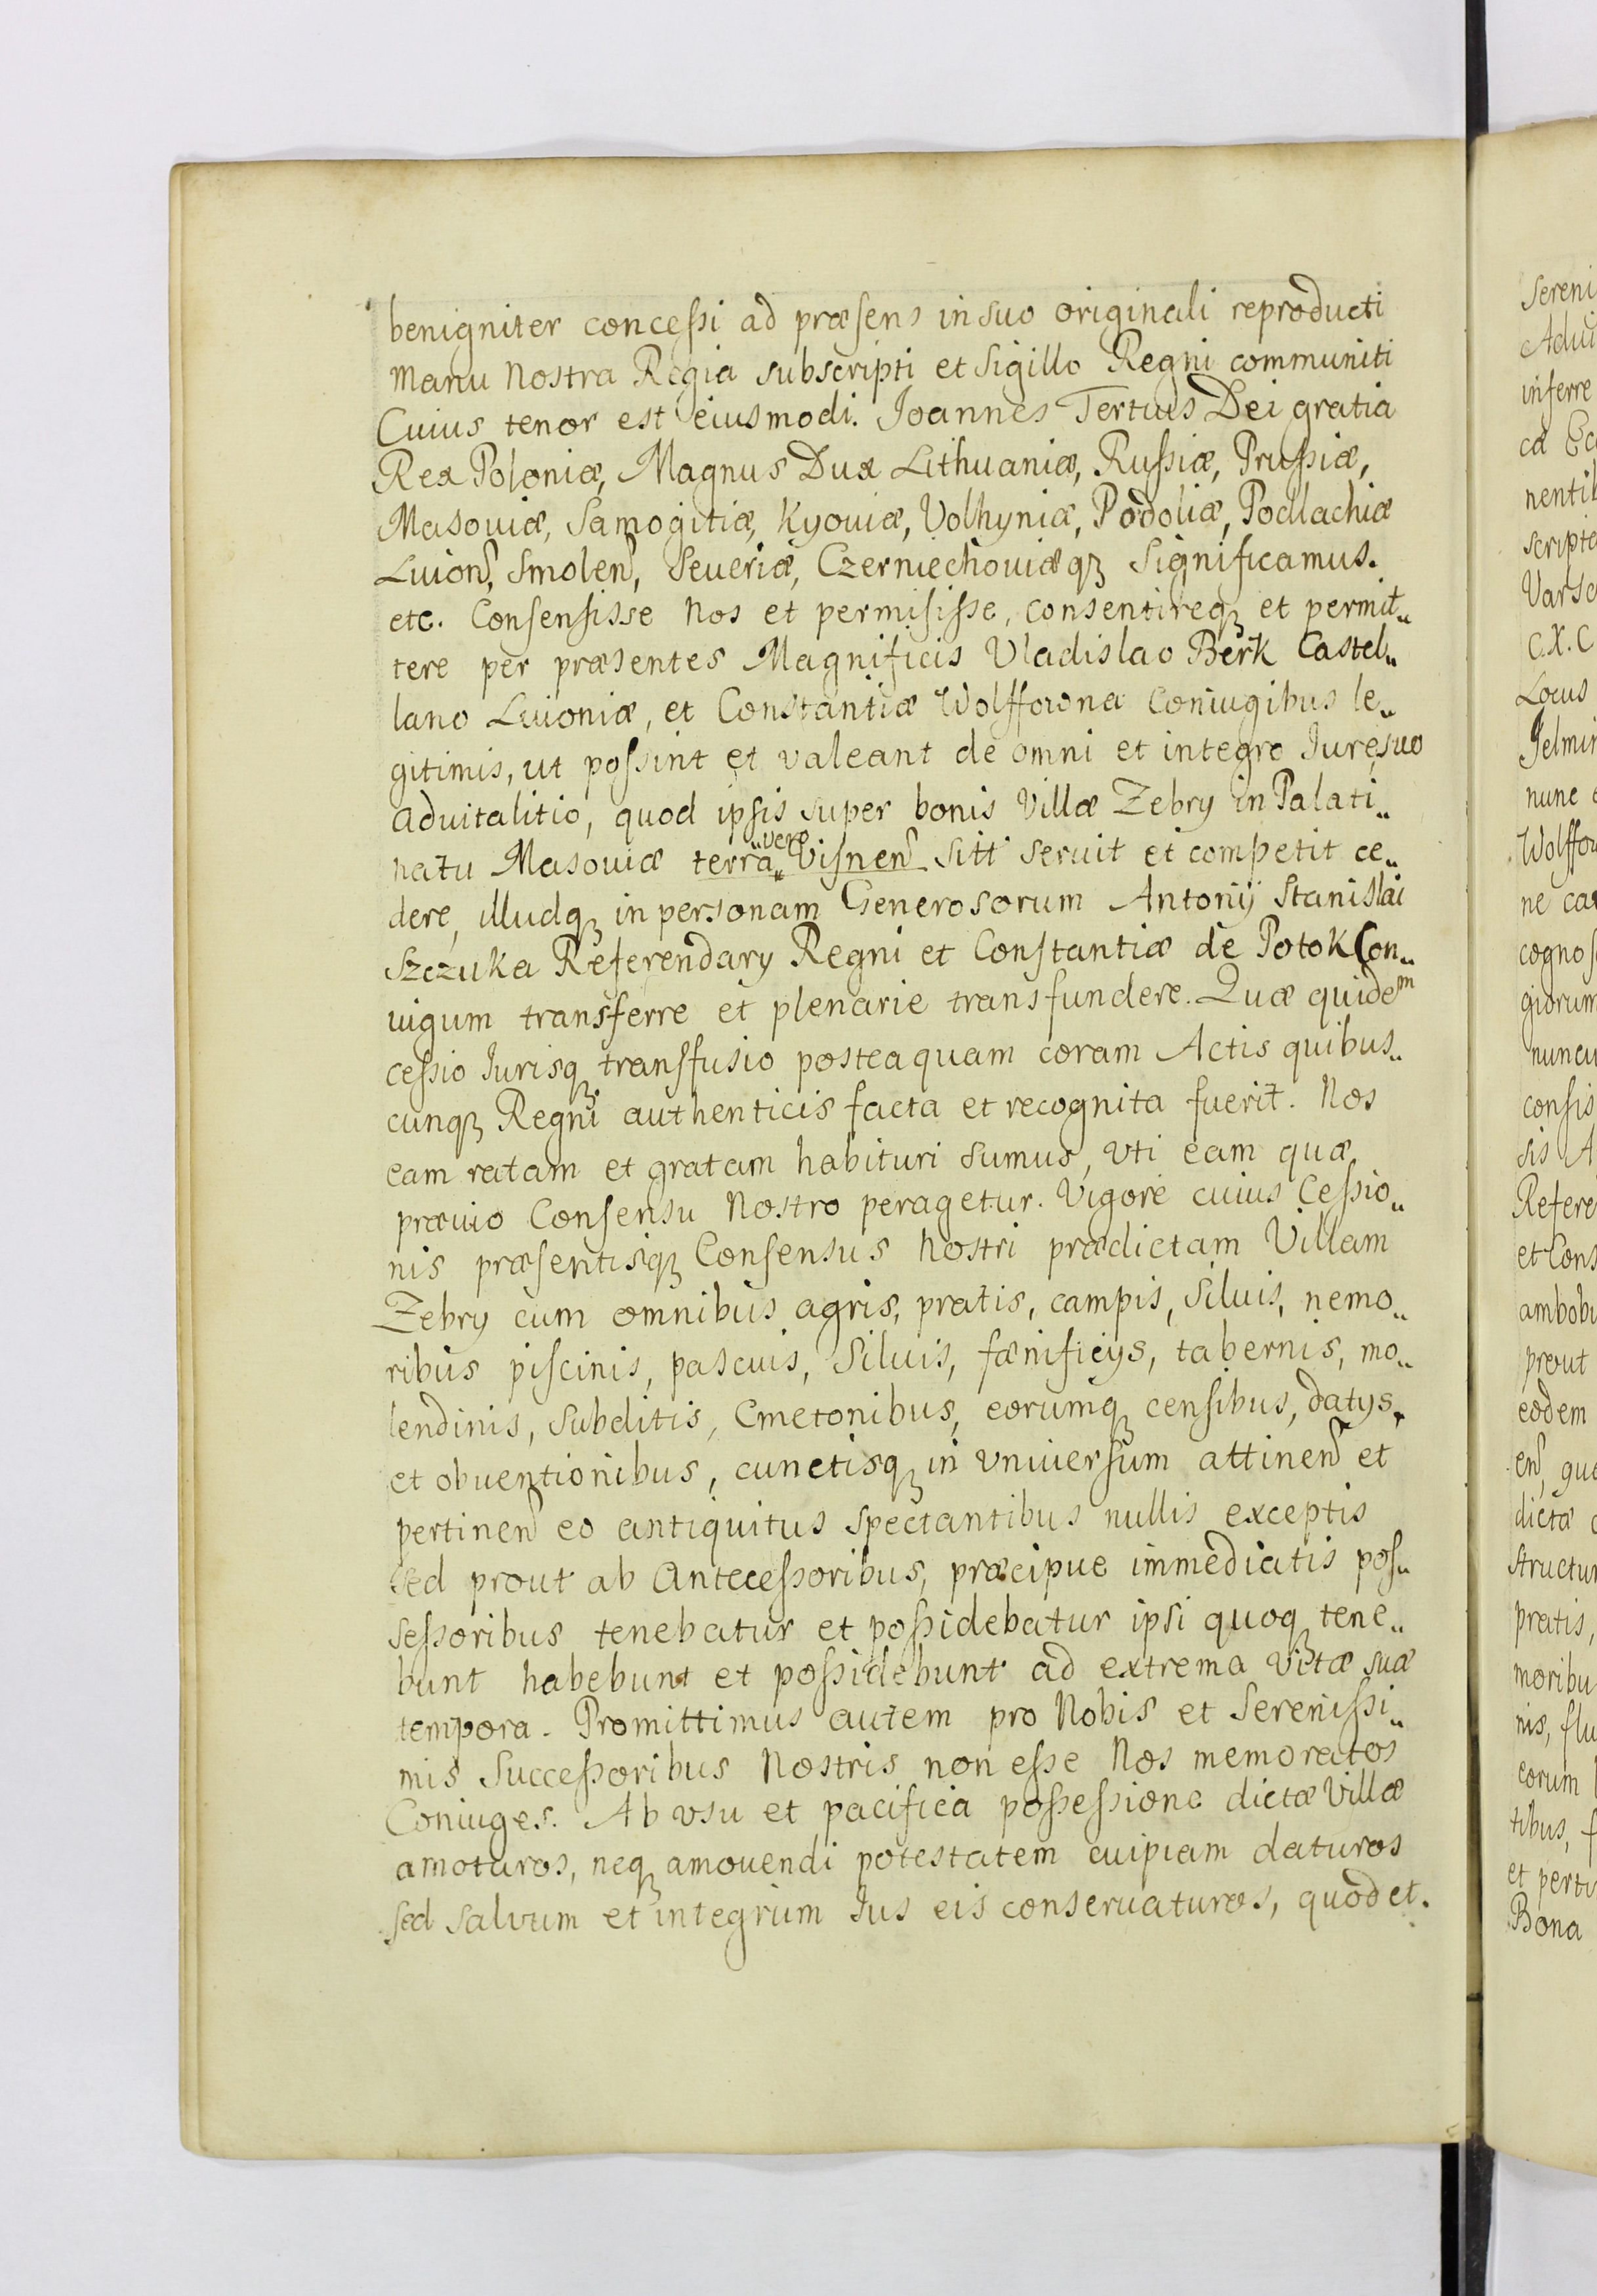 benigniter concessi ad præsens in suo originali reproducti
manu Nostra Regia subscripti et Sigillo Regni communiti
Cuius tenor est eiusmodi. Joannes Tertius Dei gratia
Rex Poloniæ, Magnus Dux Lithuaniæ, Russiæ, Prussiæ,
Masouiæ, Samogitiæ, Kyouiæ, Volhyniæ, Podoliæ, Podlachiæ
Liuoñ, Smoleñ, Seueriæ, Czerniechouiæqꝫ Significamus.
etc. Consensisse Nos et permisisse, consentireqꝫ et permit„
tere per præsentes Magnificis Vladislao Berk Castel„
lano Liuoniæ, et Constantiæ Wolffowna Coniugibus le„
gitimis, ut possint et valeant de omni et integro Iure, suo
aduitalitio, quod ipsis super bonis Villæ Zebry in Palati„
natu Masouiæ terra „vero„ Visneñ sitt seruit et competit ce„
dere, illudqꝫ in personam Generosorum Antonÿ Stanislai
Szczuka Referendary Regni et Constantiæ de Potok Con„
iugum transferre et plenarie transfundere. Quæ quidem
cessio Iurisqꝫ transfusio posteaquam coram Actis quibus„
cunqꝫ Regni authenticis facta et recognita fuerit. Nos
eam ratam et gratam habituri sumus, vti eam quæ
præuio Consensu Nostro peragetur. Vigore cuius Cessio„
nis præsentisqꝫ Consensus Nostri prædictam Villam
Zebry cum omnibus agris, pratis, campis, Siluis, nemo„
ribus piscinis, pascuis, Siluis, fænificÿs, tabernis, mo„
lendinis, subditis, Cmetonibus, eorumqꝫ censibus, datys,
et obuentionibus, cunctisqꝫ in vniuersum attineñ et
pertineñ eo antiquitus spectantibus nullis exceptis
sed prout ab Antecessoribus, præcipue immediatis pos„
sessoribus tenebatur et possidebatur ipsi quoqꝫ tene„
bunt habebunt et possidebunt ad extrema vitæ suæ
tempora. Promittimus autem pro Nobis et Serenissi„
mis Successoribus Nostris non esse Nos memoratos
Coniuges. Ab vsu et pacifica possessione dictæ Villæ
amoturos, neqꝫ amouendi potestatem cuipiam daturos
sed salvum et integrum Ius eis conseruaturos, quod et.
Sereni
Adui
inferre
ca Ec
nentib
scripto
Varso
C.X.C
Locus
Jelmin
nunc
Wolffow
ne ca
cognos
giorum
nuncu
consis
sis A
Refere
et Cons
ambobu
prout
eodem
eñ, qu
dictæ
structu
pratis,
moribu
nis, flu
eorum
tibus, f
et perti
Bona